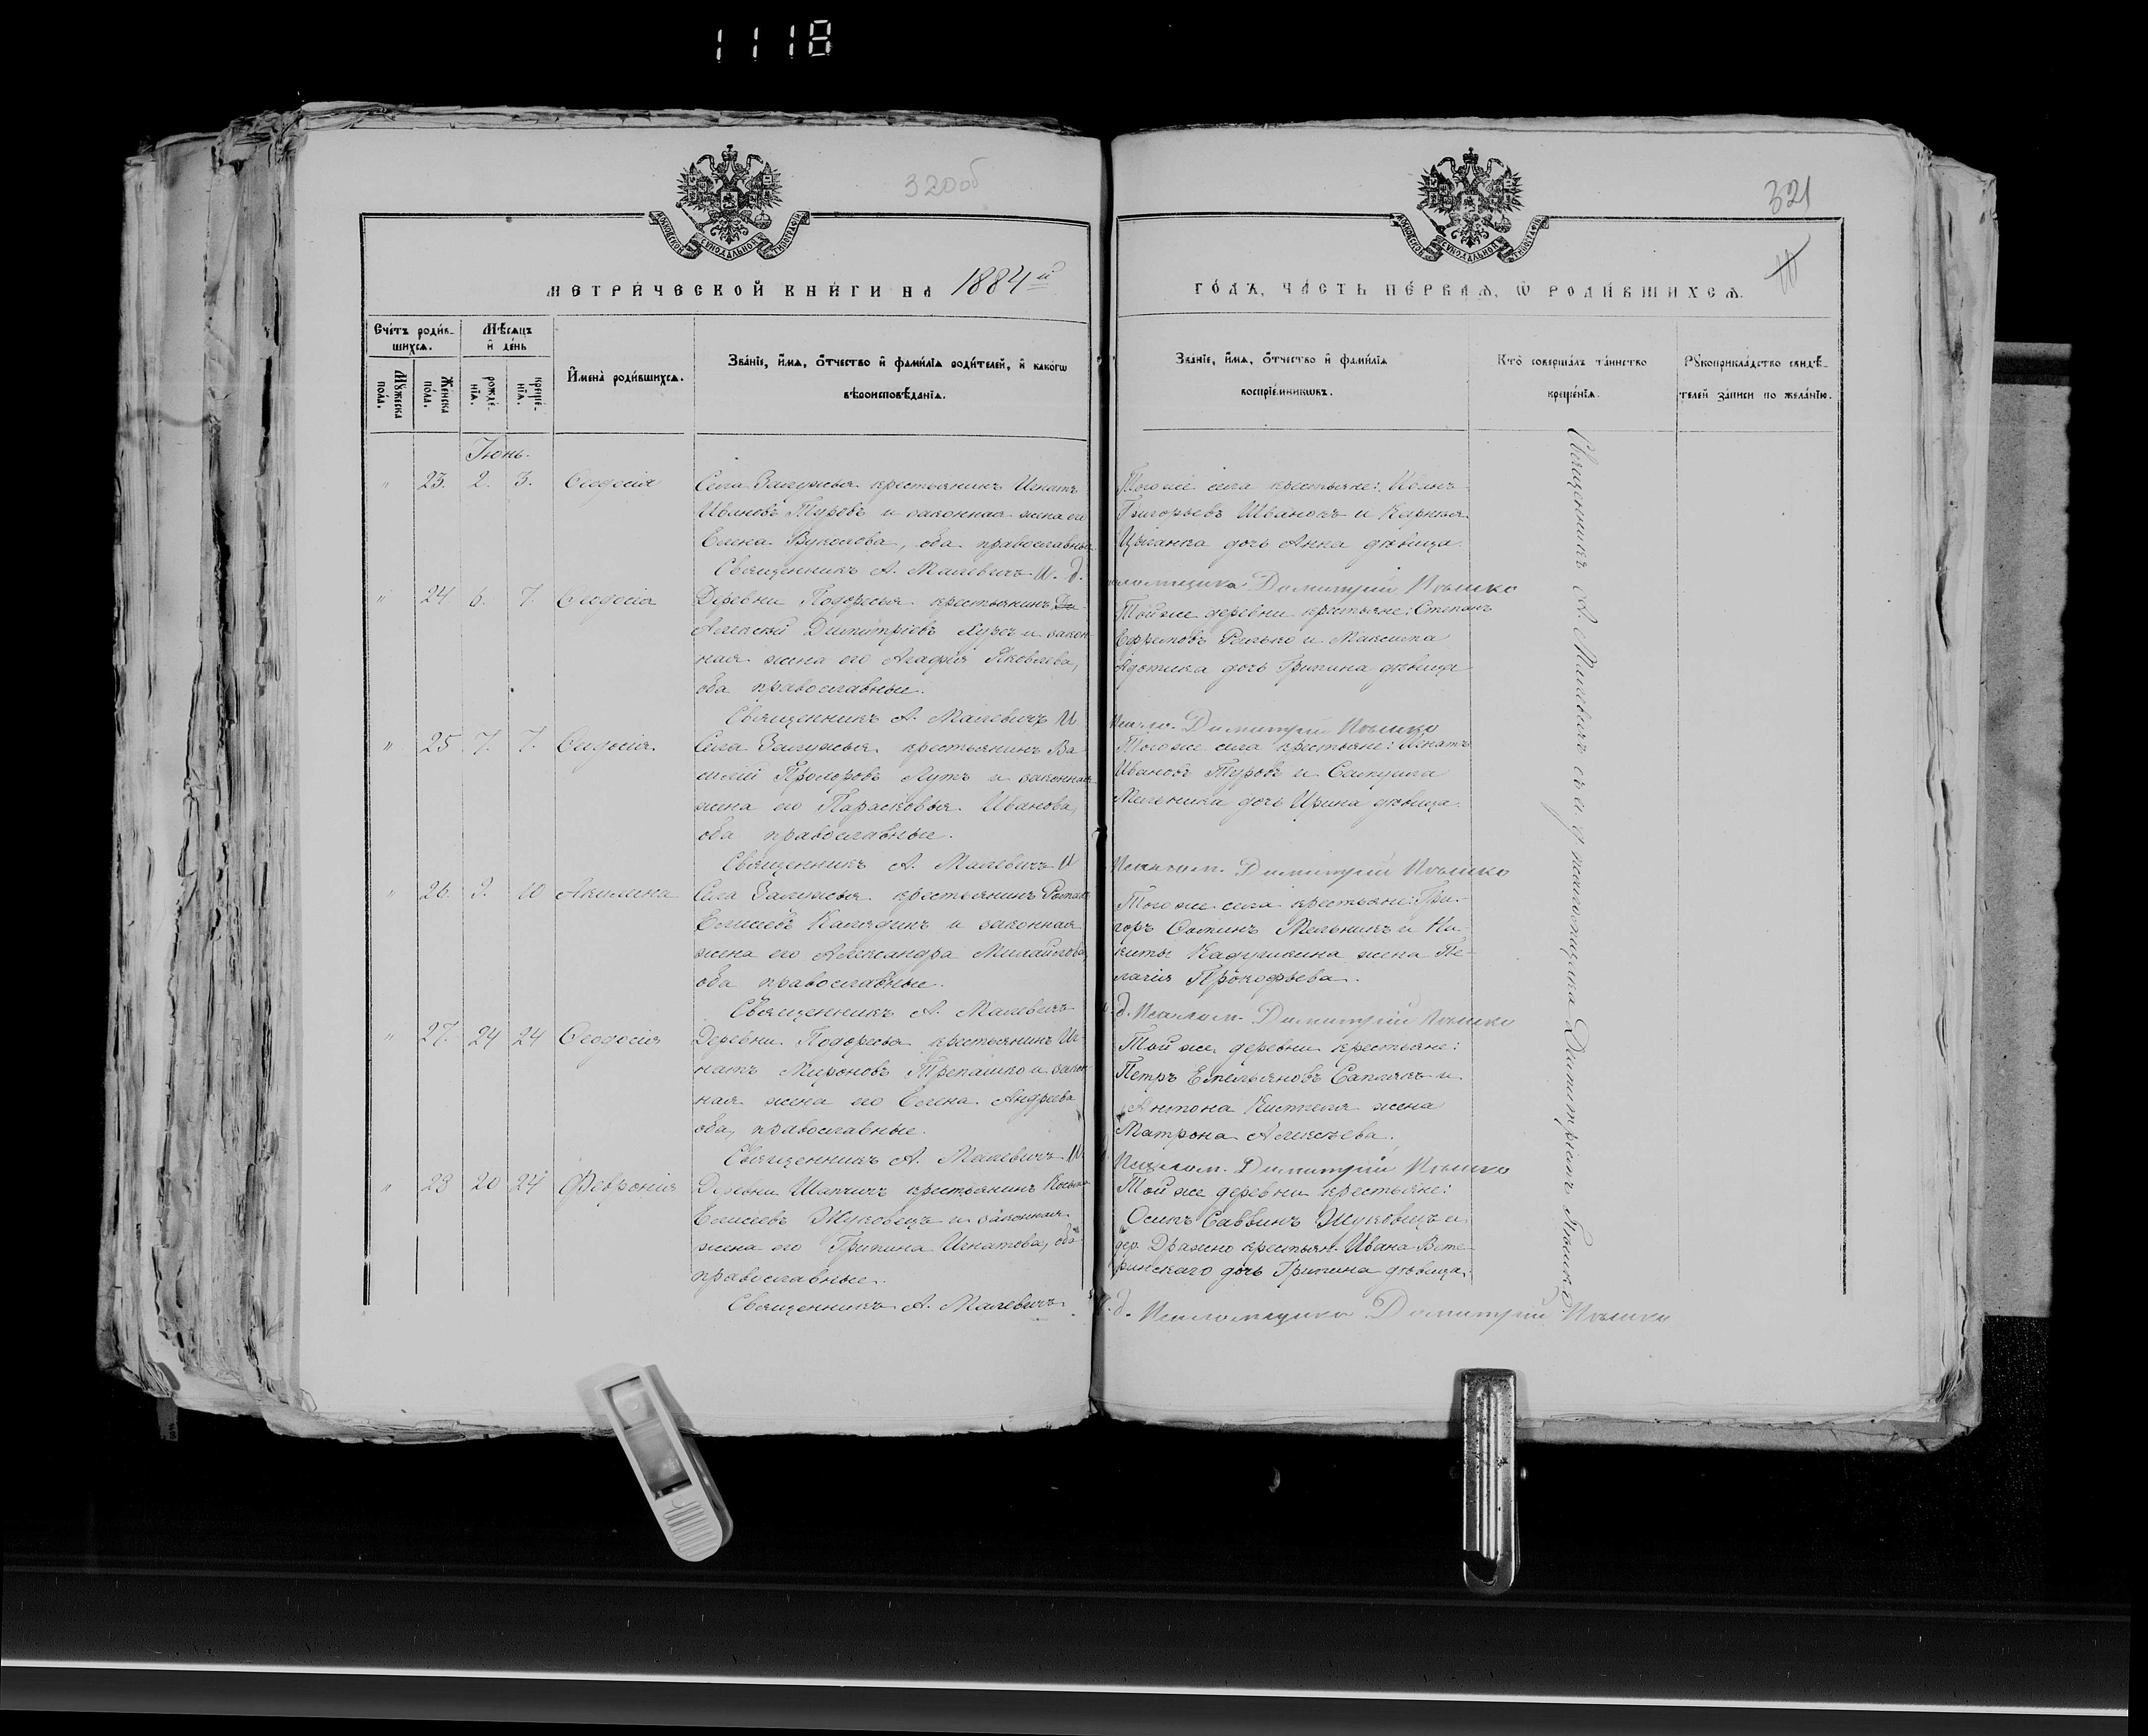 1118
320об
321
МЕТРИЧЕСКОЙ КНИГИ НА 1884й
ГОДЪ, ЧАСТЬ ПЕРВАЯ, Ѡ РОДИВШИХСЯ.
Счетъ родив-
шихся.
Мѣсяцъ
и день
Мужеска пола.
Женска пола.
рожде-
нія.
креще-
нія.
Имена родившихся.
Званіе, имя, отчество и фамилія родителей, и какогѡ
вѣроисповѣданія.
Званіе, имя, отчество и фамилія
воспріемниковъ.
Кто совершалъ таинство
крещенія.
Рукоприкладство свидѣ-
телей записи по желанію.
Іюнь.
" 23. 2. 3. Ѳеодосія
Села Залужья крестьянинъ Игнатъ
Ивановъ Туровъ и законная жена его
Елена Вуколова, оба православные
Священникъ А. Малевичъ И. д.
Тогоже села крестьяне:
Григорьевъ Иванокъ и
Цыганка дочь Анна дѣвица.
псаломщика Димитрій Пышко
" 24 6. 7. Ѳеодосія
Деревни Подоресья крестьянинъ
Алексѣй Димитріевъ и закон-
ная жена его Агафія Яковлева,
оба православные.
Священникъ А. Малевичъ И
Тойже деревни крестьяне: Степанъ
Ефремовъ и Максима
дочь Грипина дѣвица
Димитрій Пышко
" 25 7. 7. Ѳеодосія.
Села Залужья крестьянинъ Ва-
силій Прохоровъ Лутъ и законная
жена его Парасковья Иванова,
оба православные.
Священникъ А. Малевичъ И
Тогоже села крестьяне: Игнатъ
Ивановъ Туровъ и
Мельника дочь Ирина дѣвица.
Псалом. Димитрій Пышко
" 26. 9. 10 Акилина
Села Залужья крестьянинъ Романъ
Елисеевъ и законная
жена его Александра Михайлова,
оба православные.
Священникъ А. Малевичъ
Тогоже села крестьяне: Гри-
горъ Ѳоминъ Мельникъ и Ни-
киты жена Пе-
лагія Прокофьева.
и.д. Псалом. Димитрій Пышко
" 27. 24 24 Ѳеодосія
Деревни Подоресья крестьянинъ Иг-
натъ Мироновъ Трепашко и закон-
ная жена его Елена Андреева
оба православные.
Священникъ А. Малевичъ И.
Той же деревни крестьяне:
Петръ Емельяновъ Саплякъ и
Антона жена
Матрона Алексѣева.
Псалом. Димитрій Пышко
" 28 20 24 Февронія
Деревни крестьянинъ
Елисеевъ Жуковецъ и законная
жена его Грипина Игнатова, оба
православные.
Священникъ А. Малевичъ
Той же деревни крестьяне:
Осипъ Саввинъ Жуковецъ и
дер. Дражно крестьян. Ивана
дочь Грипина дѣвица.
и.д. Псаломщика Димитрій Пышко
Священникъ А. Малевичъ съ и д псаломщика Димитріемъ Пышко.